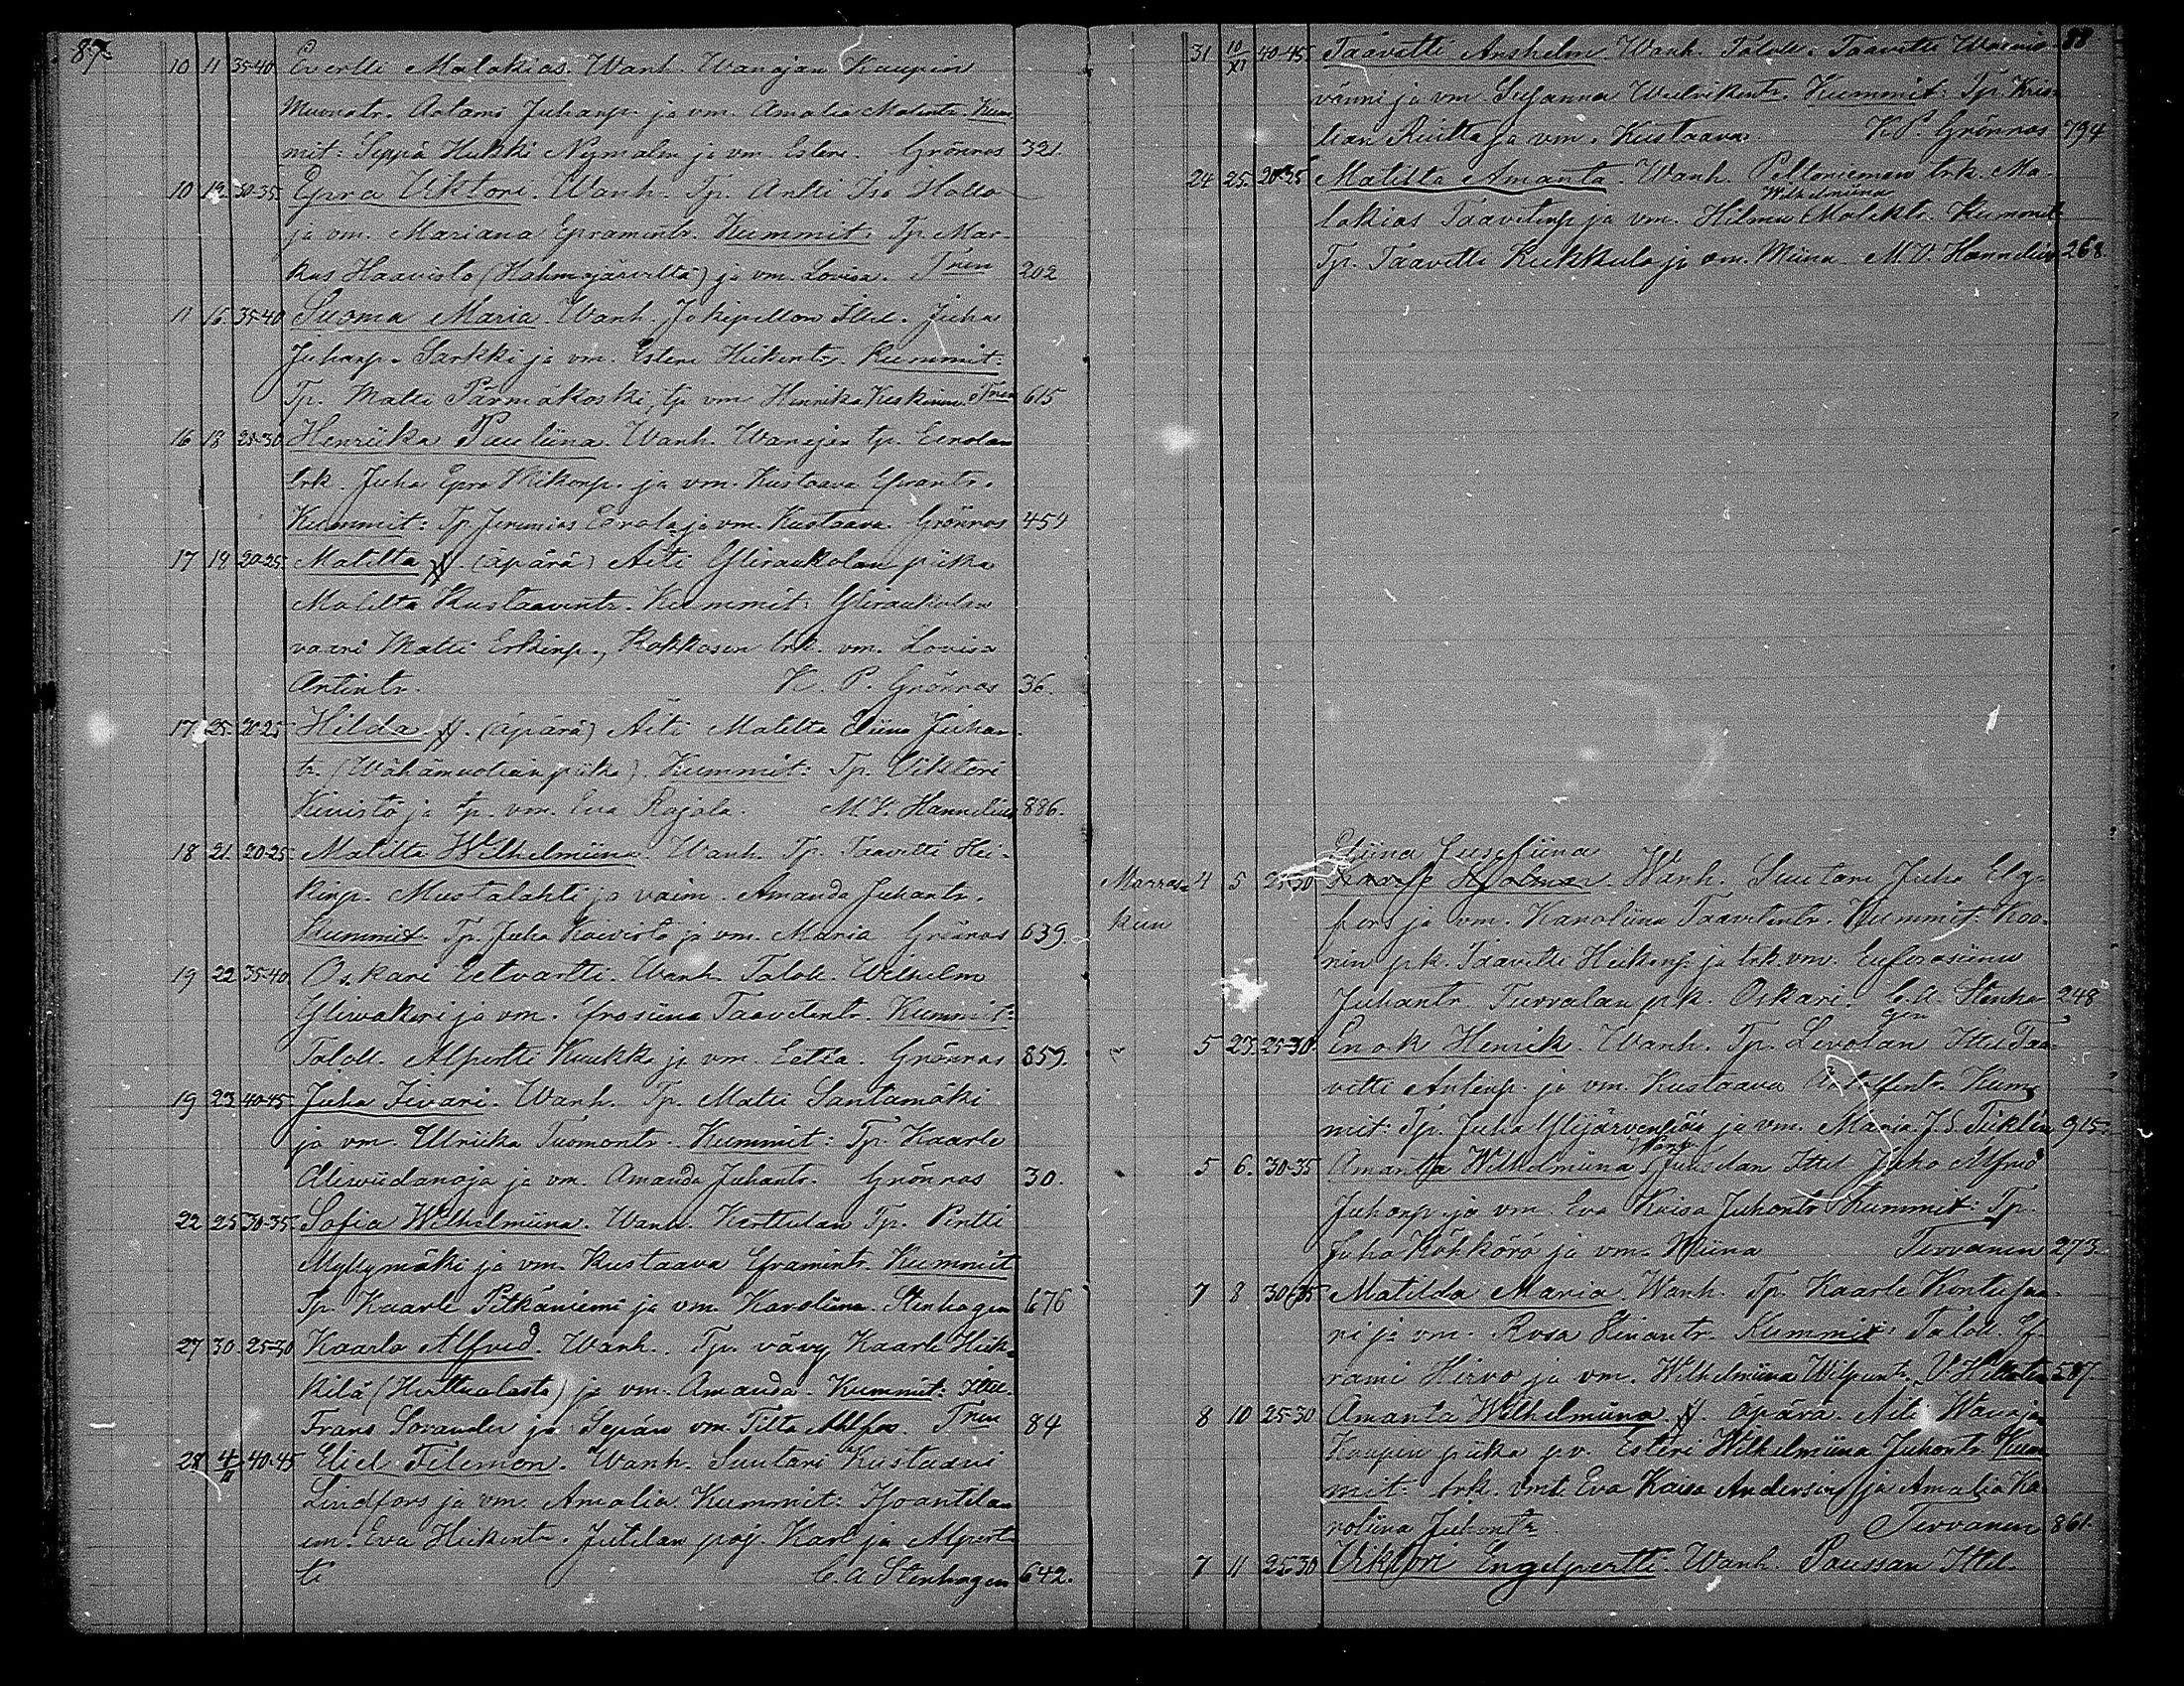 87.
10 11 35-40 Evertti Malakias. Wanh. Wanajan Kaupin
Muonstr. Aatami Juhanp. ja vm. Amalia Matintr. Kum
mit: Seppä Heikki Nymalm ja vm. Esteri. Grönroos 321.
10 12 30-35 Epra Viktori. Wanh. Tp. Antti Iso Hollo
ja vm. Mariana Epramintr. Kummit: Tp. Mar-
kus Haavisto (Hahmajärveltä) ja vm. Lovisa. Tren 202
11 16 35-40 Suoma Maria. Wanh. Jokipellon Ittel. Juha
Juhanp. Sarkki ja vm. Esteri Heikintr. Kummit:
Tp. Matti Pärmäkoski, tp vm Henrika Keskinen. Tren 615
16 18 25-30 Henriika Pauliina. Wanh. Wanajan tp. Eerolan
trk. Juha Epra Mikonp. ja vm. Kustaava Efrantr.
Kummit: Tp. Jeremias Eerola ja vm. Kustaava. Grönroos 459
17 19 20-25 Matilta (äpärä) Äiti Yliraukolan piika
Matilta Kustaavintr. Kummit: Yliraukolan
vaari Matti Erkinp., Kokkosen trk. vm. Lovisa
Antintr. K. P. Grönroos 36.
17 25. 20-25 Hilda. (äpärä) Äiti Matilta Eliina Juhan-
tr. (Wähämuolian piika). Kummit: Tp. Viktori
Kivistö ja tp. vm. Eva Rajala. M.V. Hannelius 886.
18 21. 20-25 Matilta Wilhelmiina. Wanh. Tp. Taavetti Hei-
kinp. Mustalahti ja vaim. Amanda Juhantr.
Kummit. Tp. Juha Koivisto ja vm. Maria Grönroos 639
19 22 35-40 Oskari Eetvartti. Wanh. Talol. Wilhelm
Yliwakeri ja vm. Efrosiina Taavetintr. Kummit:
Talol. Alpertti Kuukka ja vm. Eetla. Grönroos 859.
19 23 40-45 Juha Iivari. Wanh. Tp. Matti Santamäki
ja vm. Ulriika Tuomontr. Kummit: Tp. Kaarle
Aliwiidanoja ja vm. Amanda Juhantr. Grönroos 30.
22 25 30-35 Sofia Wilhelmiina. Wanh. Kerttulan Tp. Pertti
Myllymäki ja vm. Kustaava Eframintr. Kummit
Tp. Kaarle Pitkäniemi ja vm. Karoliina. Stenhagen 676
27 30 25-30 Kaarlo Alfred. Wanh. Tp. vävy Kaarle Heik-
kilä (Huttualasta) ja vm. Amanda. Kummit: Ittel.
Frans Sorander ja Sepän vm. Tilta Ahlfors. Tren 84
28 4/11 40-45 Eliel Filemon. Wanh. Suutari Kustaavi
Lindfors ja vm. Amalia. Kummit: Isoantilan
em. Eva Heikintr. Jutilan poj. Karl ja Alpert-
ti C. A Stenhagen 642.
88
31 10/XI 40-45 Taavetti Anshelm. Wanh. Talol. Taavetti Wainio-
vänni ja vm. Susanna Wulrikintr. Kummit: Tp. Kris-
tian Riutta ja vm. Kustaava. K.P. Grönroos 794
24 25. 20-25 Matilta Amanta. Wanh. Peltoniemen trk. Ma-
Wilhelmiina
lakias Taavetinp. ja vm. Hilma Malektr. Kummit
Tp. Taavetti Kukkula ja vm. Miina M.V. Hannelius 268.
Eliina Jusefiina
Marras- 4 5 25-30 Wanh. Suutari Juha Elg-
kuu fors ja vm. Karoliina Taavetintr. Kummit: Koo-
nin pk. Taavetti Heikinp. ja trk. vm. Euforosiina
Juhantr. Turralan pk. Oskari. C.A. Stenha- 248
gen
5 23 25-30 Enok Henrik. Wanh. Tp. Levolan Ittel. Taa-
vetti Antinp. ja vm. Kustaava Kum-
mit: Tp. Juha Ylijärvenpää ja vm. Maria. J.S. Tiiklén 915.
Wanh.
5 6. 30-35 Amanta Wilhelmiina Jussilan Ittel Juho Alfred
Juhanp. ja vm. Eva Kaisa Juhantr. Kummit: Tp.
Juha Köhkörö ja vm. Miina Tervanen 273.
7 8 30-35 Matilda Maria. Wanh. Tp. Kaarle Kontusaa-
ri ja vm. Rosa Iinantr. Kummit: Talol. Ef-
rami Hirvo ja vm. Wilhelmiina Wilpuntr. V. Helleten 587.
8 10 25-30 Amanta Wilhelmiina. äpärä. Äiti Wanajan
Kaupin piika p.v. Esteri Wilhelmiina Juhontr. Kum-
mit: trk. vmt. Eva Kaisa Andersin ja Amalia Ka-
roliina Juhontr Tervanen 861.
7 11 25-30 Viktori Engelpertti. Wanh. Paussan Ittel.